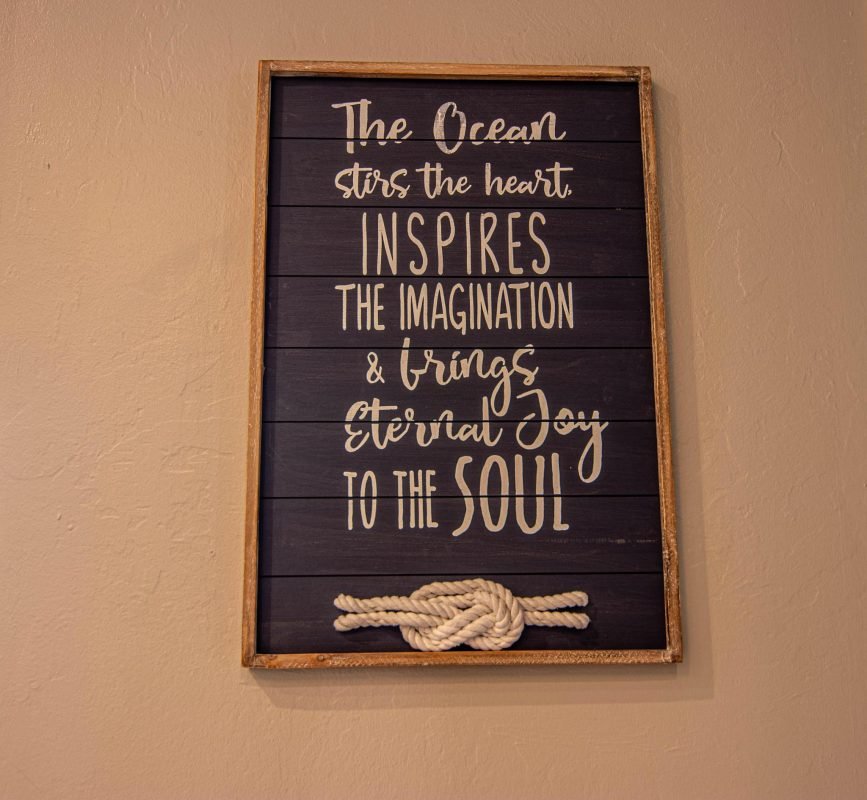 The Ocean
stirs the heart,
INSPIRES
THE IMAGINATION
& brings
Eternal Joy
TO THE SOUL